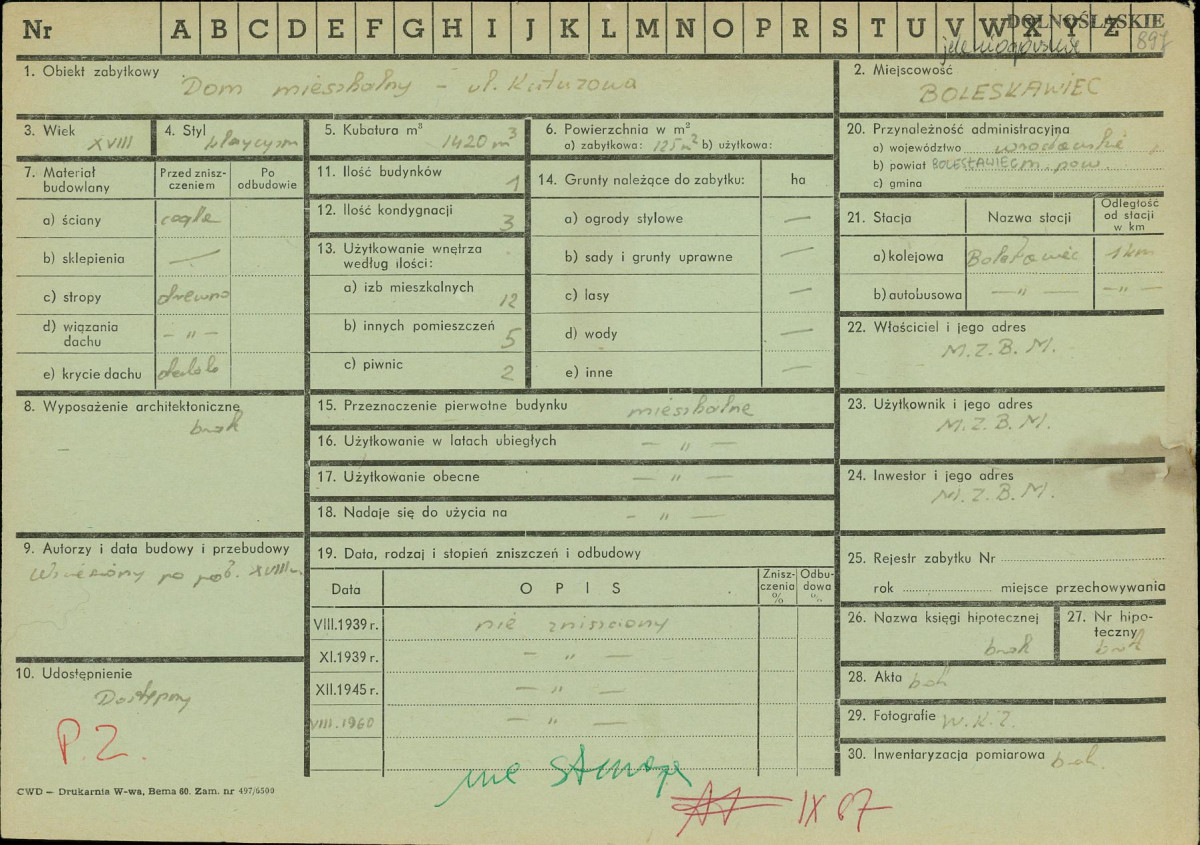 Nr A B C D E F G H I J K L M N O P R S T U V W X Y Z DOLNOŚLĄSKIE
jeleniogórskie 897
1. Obiekt zabytkowy
Dom mieszkalny - ul. Kutuzowa
2. Miejscowość
BOLESŁAWIEC
3. Wiek
XVIII
4. Styl
klasycyzm
5. Kubatura m³
1420 m³
6. Powierzchnia w m²
a) zabytkowa: 125 m² b) użytkowa:
7. Materiał budowlany
Przed zniszczeniem
Po odbudowie
a) ściany cegła
b) sklepienia —
c) stropy drewno
d) wiązania dachu — " —
e) krycie dachu
8. Wyposażenie architektoniczne
brak
9. Autorzy i data budowy i przebudowy
Wzniesiony po poł. XVIII w.
10. Udostępnienie
Dostępny
P.Z.
11. Ilość budynków 1
12. Ilość kondygnacji 3
13. Użytkowanie wnętrza według ilości:
a) izb mieszkalnych 12
b) innych pomieszczeń 5
c) piwnic 2
14. Grunty należące do zabytku: ha
a) ogrody stylowe —
b) sady i grunty uprawne —
c) lasy —
d) wody —
e) inne —
15. Przeznaczenie pierwotne budynku mieszkalne
16. Użytkowanie w latach ubiegłych — " —
17. Użytkowanie obecne — " —
18. Nadaje się do użycia na — " —
19. Data, rodzaj i stopień zniszczeń i odbudowy
Data OPIS Zniszczenia % Odbudowa %
VIII.1939 r. nie zniszczony
XI.1939 r. — " —
XII.1945 r. — " —
VIII.1960 — " —
nie
IX 87
20. Przynależność administracyjna
a) województwo wrocławskie
b) powiat BOLESŁAWIEC m. pow.
c) gmina
21. Stacja Nazwa stacji Odległość od stacji w km
a) kolejowa Bolesławiec 1 km
b) autobusowa — " — — " —
22. Właściciel i jego adres
M.Z.B.M.
23. Użytkownik i jego adres
M.Z.B.M.
24. Inwestor i jego adres
M.Z.B.M.
25. Rejestr zabytku Nr
rok miejsce przechowywania
26. Nazwa księgi hipotecznej
brak
27. Nr hipoteczny
brak
28. Akta brak
29. Fotografie W.K.Z.
30. Inwentaryzacja pomiarowa brak
CWD — Drukarnia W-wa, Bema 60. Zam. nr 497/6500